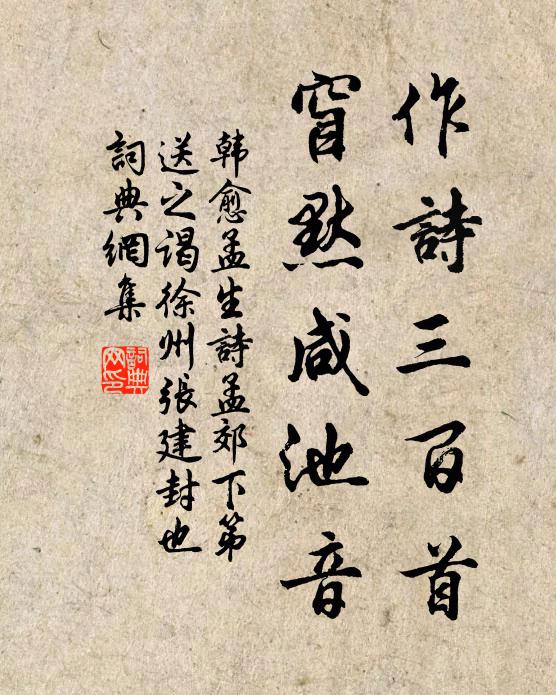 作詩三百首
窅默咸池音
韩愈孟生詩孟郊下第
送之谒徐州張建封也
詞典網集
詞典网印